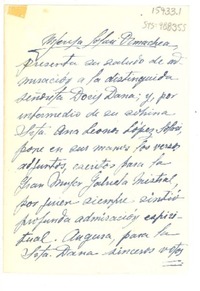 15433.1
Sys-968955
Marisa Sofan Dimachea
presenta su saludo de ad-
miración a la distinguida
señorita Doris Dana; y, por
intermedio de su sobrina
Srta. Ana Leonor López
pone en sus manos los versos
adjuntos, escritos para la
Gran Mujer Gabriela Mistral,
por quien siempre sintió
profunda admiración espiri-
tual. Augura, para la
Srta. Dana sinceros votos